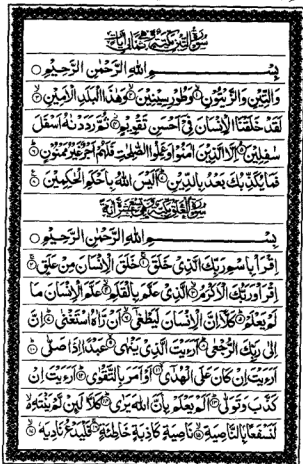 سورة التين مكية وهي ثماني آيات
بِسْمِ اللهِ الرَّحْمٰنِ الرَّحِيْمِ
وَالتِّيْنِ وَالزَّيْتُوْنِ ۙ وَطُوْرِ سِيْنِيْنَ ۙ وَهٰذَا الْبَلَدِ الْاَمِيْنِ ۙ
لَقَدْ خَلَقْنَا الْاِنْسَانَ فِيْٓ اَحْسَنِ تَقْوِيْمٍ ثُمَّ رَدَدْنٰهُ اَسْفَلَ
سٰفِلِيْنَ اِلَّا الَّذِيْنَ اٰمَنُوْا وَعَمِلُوا الصّٰلِحٰتِ فَلَهُمْ اَجْرٌ غَيْرُ مَمْنُوْنٍ
فَمَا يُكَذِّبُكَ بَعْدُ بِالدِّيْنِ اَلَيْسَ اللهُ بِاَحْكَمِ الْحٰكِمِيْنَ
بِسْمِ اللهِ الرَّحْمٰنِ الرَّحِيْمِ
اِقْرَاْ بِاسْمِ رَبِّكَ الَّذِيْ خَلَقَ خَلَقَ الْاِنْسَانَ مِنْ عَلَقٍ
اِقْرَاْ وَرَبُّكَ الْاَكْرَمُ الَّذِيْ عَلَّمَ بِالْقَلَمِ عَلَّمَ الْاِنْسَانَ مَا
لَمْ يَعْلَمْ كَلَّآ اِنَّ الْاِنْسَانَ لَيَطْغٰٓى اَنْ رَّاٰهُ اسْتَغْنٰى اِنَّ
اِلٰى رَبِّكَ الرُّجْعٰى اَرَءَيْتَ الَّذِيْ يَنْهٰى عَبْدًا اِذَا صَلّٰى
اَرَءَيْتَ اِنْ كَانَ عَلَى الْهُدٰٓى اَوْ اَمَرَ بِالتَّقْوٰى اَرَءَيْتَ اِنْ
كَذَّبَ وَتَوَلّٰى اَلَمْ يَعْلَمْ بِاَنَّ اللهَ يَرٰى كَلَّا لَئِنْ لَّمْ يَنْتَهِ
لَنَسْفَعًا بِالنَّاصِيَةِ نَاصِيَةٍ كَاذِبَةٍ خَاطِئَةٍ فَلْيَدْعُ نَادِيَهٗ